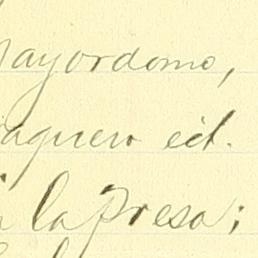 Mayordomo,
vaquero ect.
la Presa;